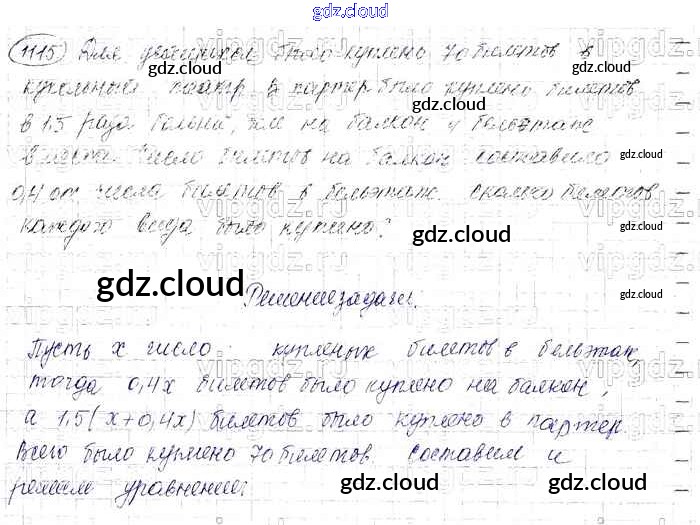 gdz.cloud
1115 Для учащихся было куплено 70 билетов в
кукольный театр. В партер было куплено билетов
в 1.5 раза больше, чем на балкон и бельэтаж
вместе. Число билетов на балкон составило
0,4 от числа билетов в бельэтаж. Сколько билетов
каждого вида было куплено?
Решение задачи.
Пусть x число купленных билетов в бельэтаж,
тогда 0,4x билетов было куплено на балкон,
а 1.5(x+0,4x) билетов было куплено в партер
Всего было куплено 70 билетов. Составим и
решим уравнение: